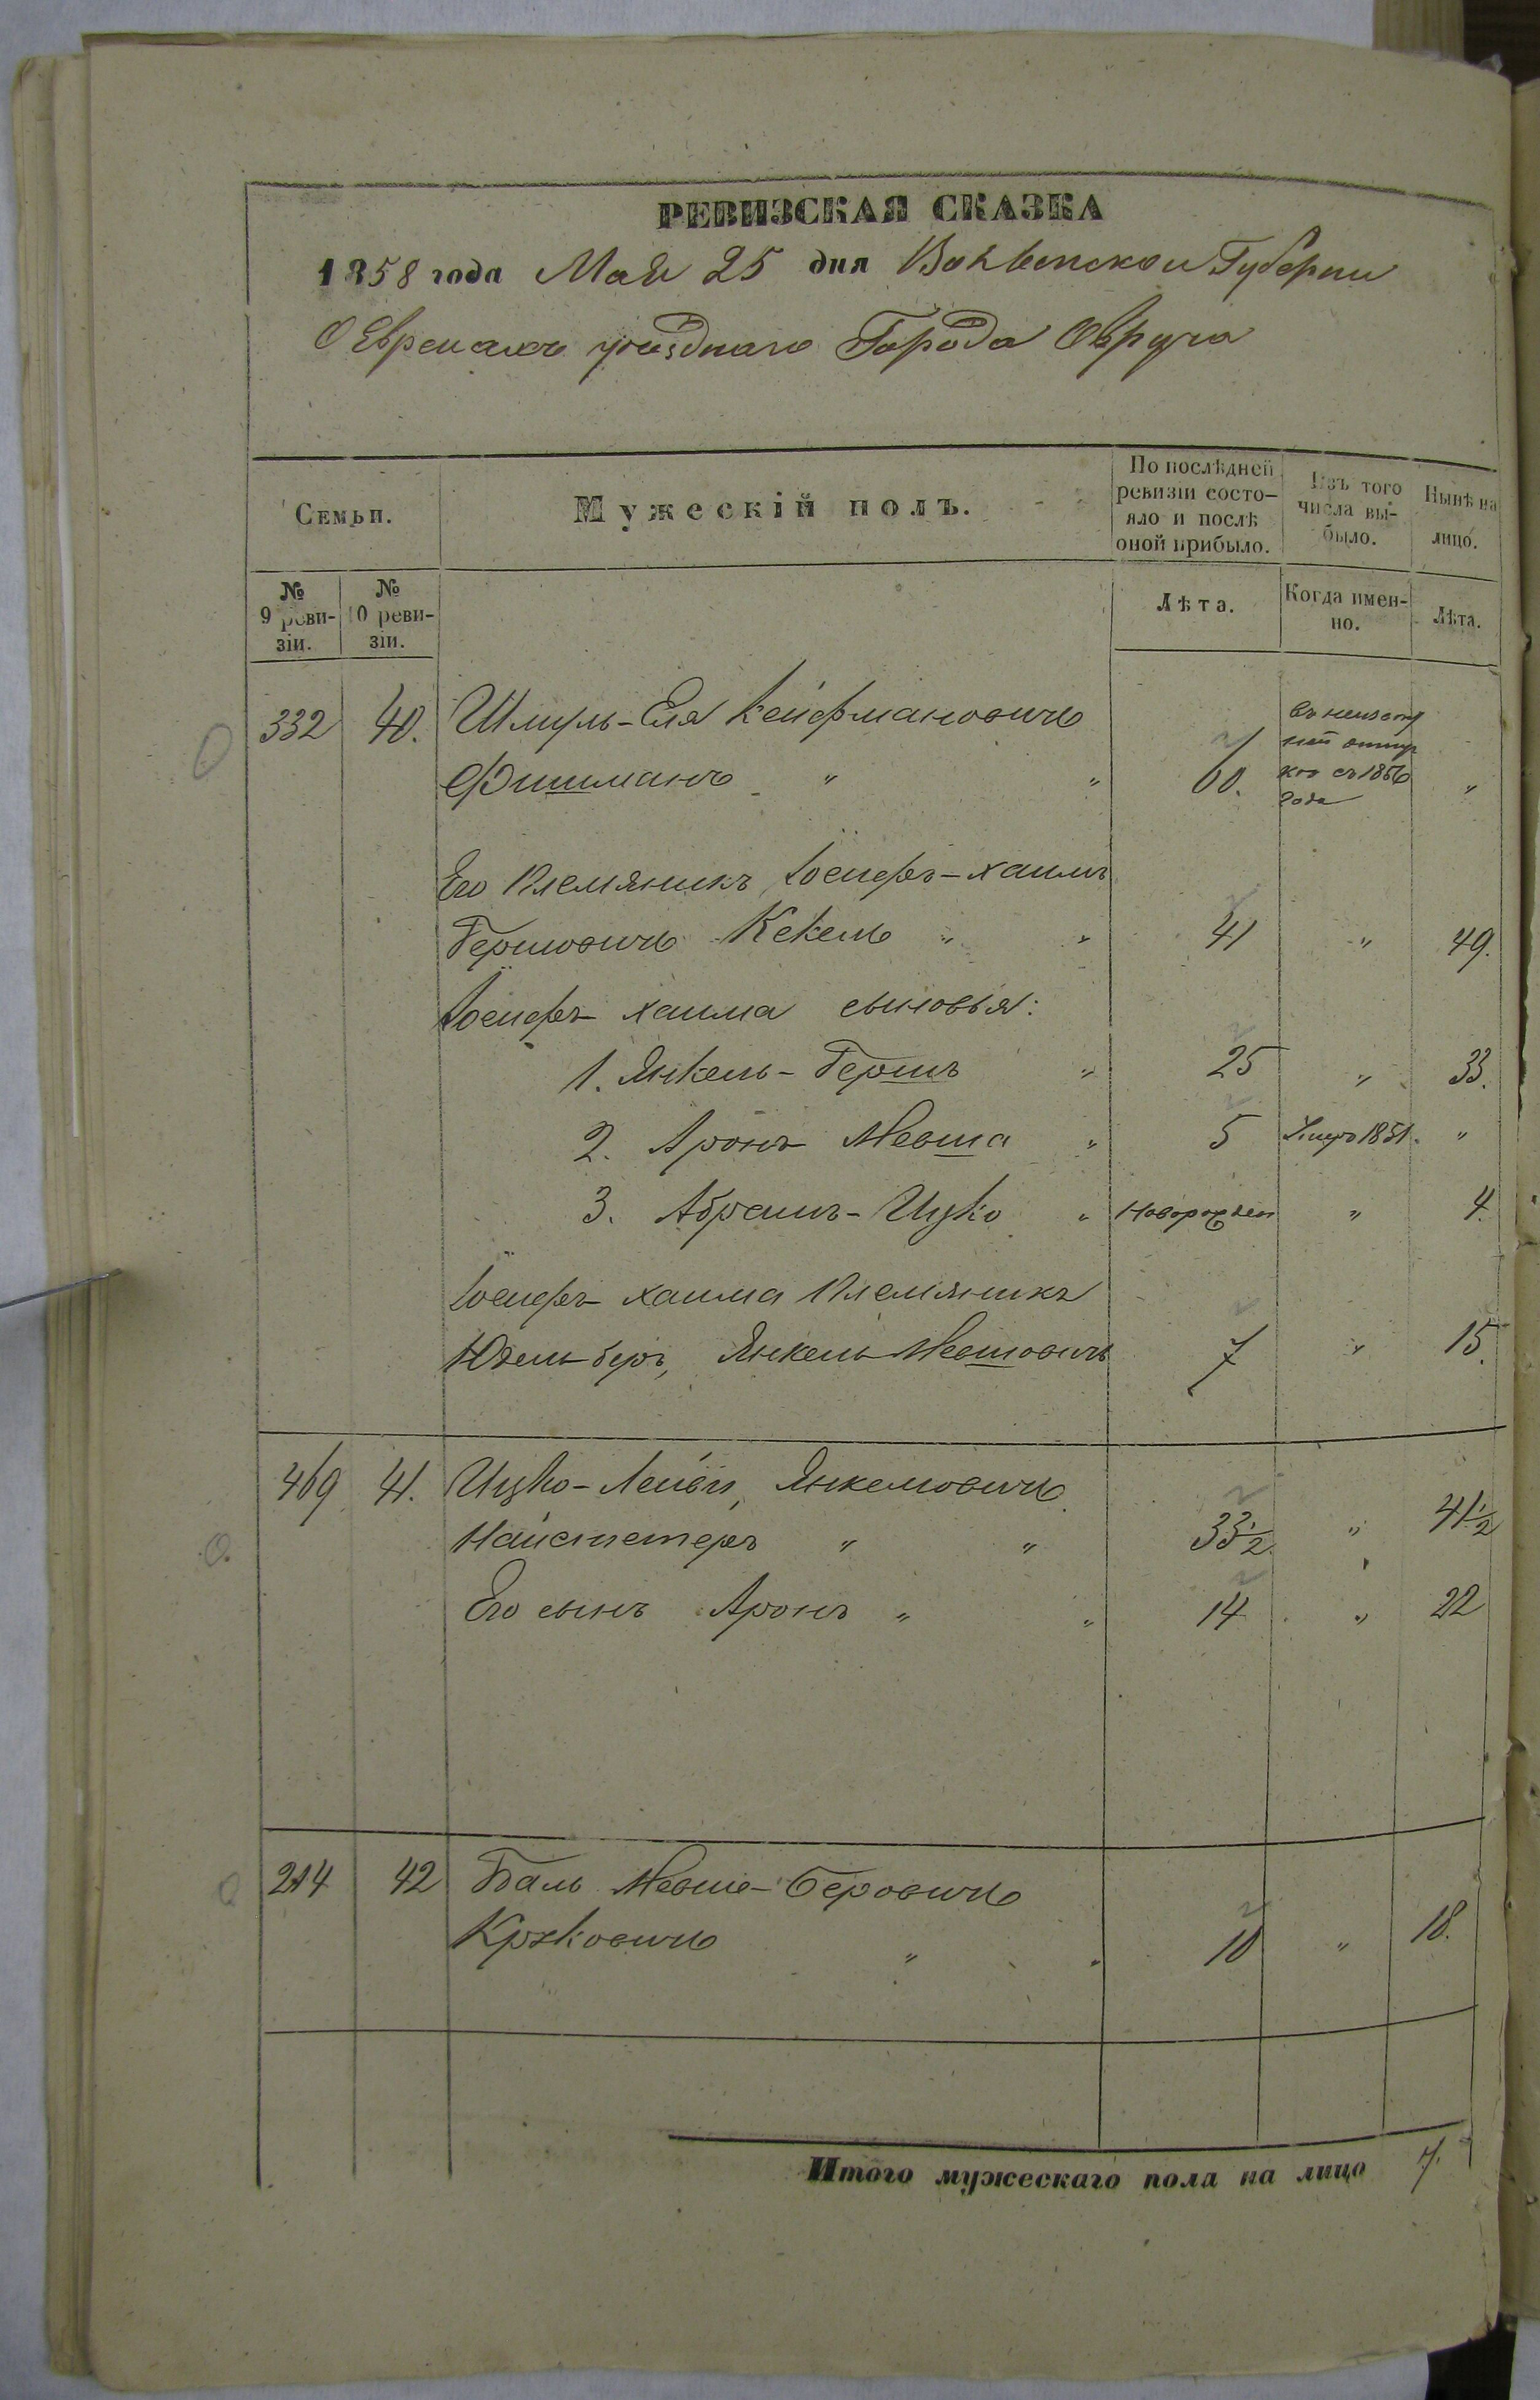 РЕВИЗСКАЯ СКАЗКА
1858 года Мая 25 дня Волынской Губернии
О Евреяхъ уѣзднаго Города Овруча
Семьи.
Мужескій полъ.
По послѣдней ревизіи состо-
яло и послѣ
оной прибыло.
Изъ того
числа вы-
было.
Нынѣ на
лицо.
№
9 реви-
зіи.
№
10 реви-
зіи.
Лѣта.
Когда имен-
но.
Лѣта.
332 40. Шмуль-Еля Кейфмановичь
Фишманъ " " 60. въ неизвѣстной отлучкѣ съ 1856 года "
Его Племяникъ Іосифъ-Хаимъ
Гершовичь Кекель " " 41 " 49.
Іосифъ Хаима сыновья:
1. Янкель-Гершъ " 25 " 33.
2. Аронъ Мевша " 5 Умеръ 1851. "
3. Абрамъ-Ицко " Новорожден " 4.
Іосифъ Хаима Племяникъ
Юдель беръ, Янкель Мевшовичъ 7 " 15.
469 41. Ицко-Лейби, Янкелювичь
Найстетеръ " " 33½ " 41½
Его сынъ Аронъ " " 14 " 22
214 42 Баль Мевше-Беровичь
Кржковичь " " 10 " 18.
Итого мужескаго пола на лицо 7.